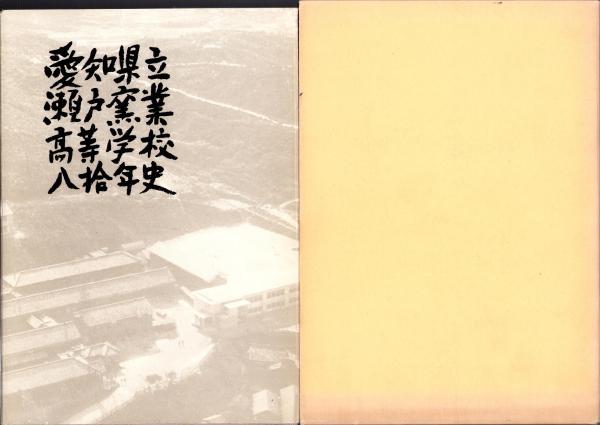 愛知県立
瀬戸窯業
高等学校
八拾年史